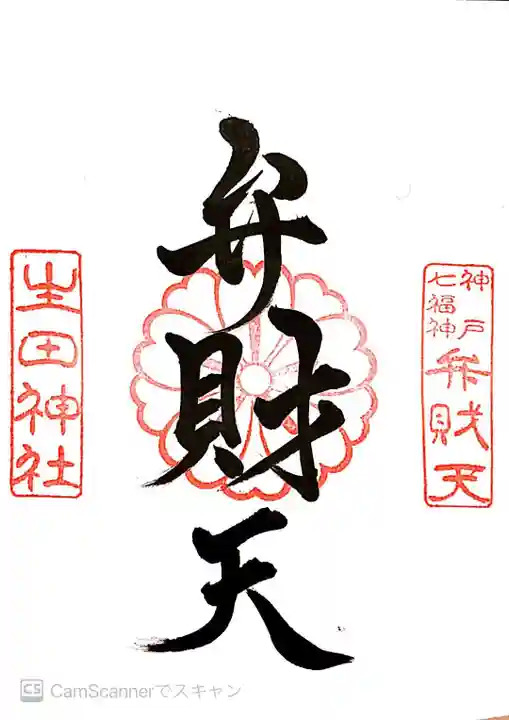 神戸
七福神
弁財天
弁財天
生田神社
CS CamScannerでスキャン